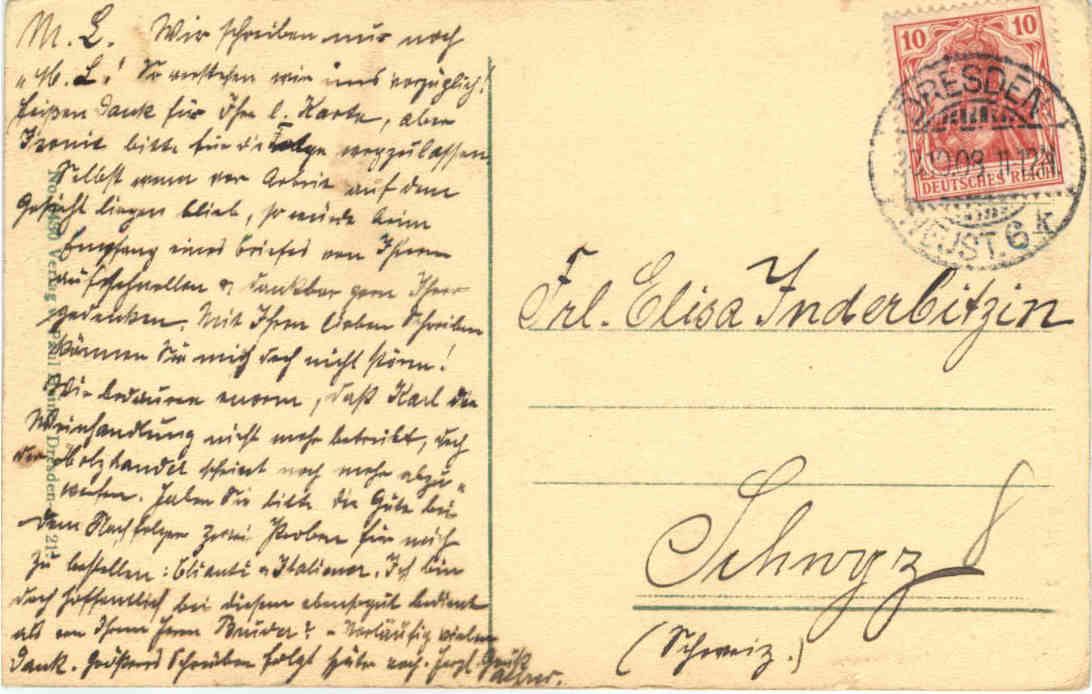 M. L. Wir schreiben nur noch
"M. L.! So verstehen wir uns vorzüglich!
Heißen Dank für Ihre l. Karte, aber
Ironie bitte für die Folge wegzulassen
Selbst wenn vor Arbeit auf dem
Gesicht liegen blieb, so würde beim
Empfang eines Briefes von Ihnen
aufschnellen & dankbar gern Ihrer
gedenken. Mit Ihrem lieben Schreiben
können Sie mich doch nicht stören!
Wir bedauern enorm, daß Karl die
Weinhandlung nicht mehr betreibt, doch
der Holzhandel scheint noch mehr abzu-
werfen. Haben Sie bitte die Güte bei
dem Nachfolger zwei Proben für mich
zu bestellen: Clianti & Italiener. Ich bin
doch hoffentlich bei diesem ebensogut bedient
als von Ihrem Herrn Bruder? - Vorläufig vielen
Dank. Größeres Schreiben folgt später nach. Herzl. Gruß
10 10
DEUTSCHES REICH
DRESDEN
10.09. 11-12V.
NEUST. 6 k
Frl. Elisa Inderbitzin
Schwyz
(Schweiz.)
Verlag Dresden-21